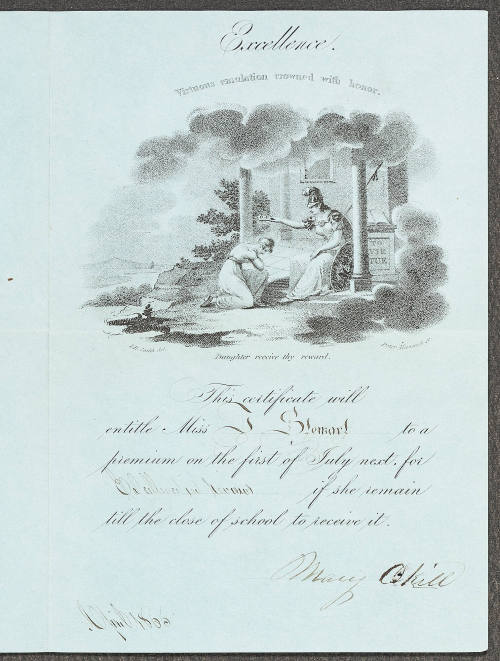 Excellence.
Virtuous emulation crowned with honor.
TO
VIR
TUE
Daughter receive thy reward.
This certificate will
entitle Miss J Stewart to a
premium on the first of July next, for
if she remain
till the close of school to receive it.
Mary Okill
April